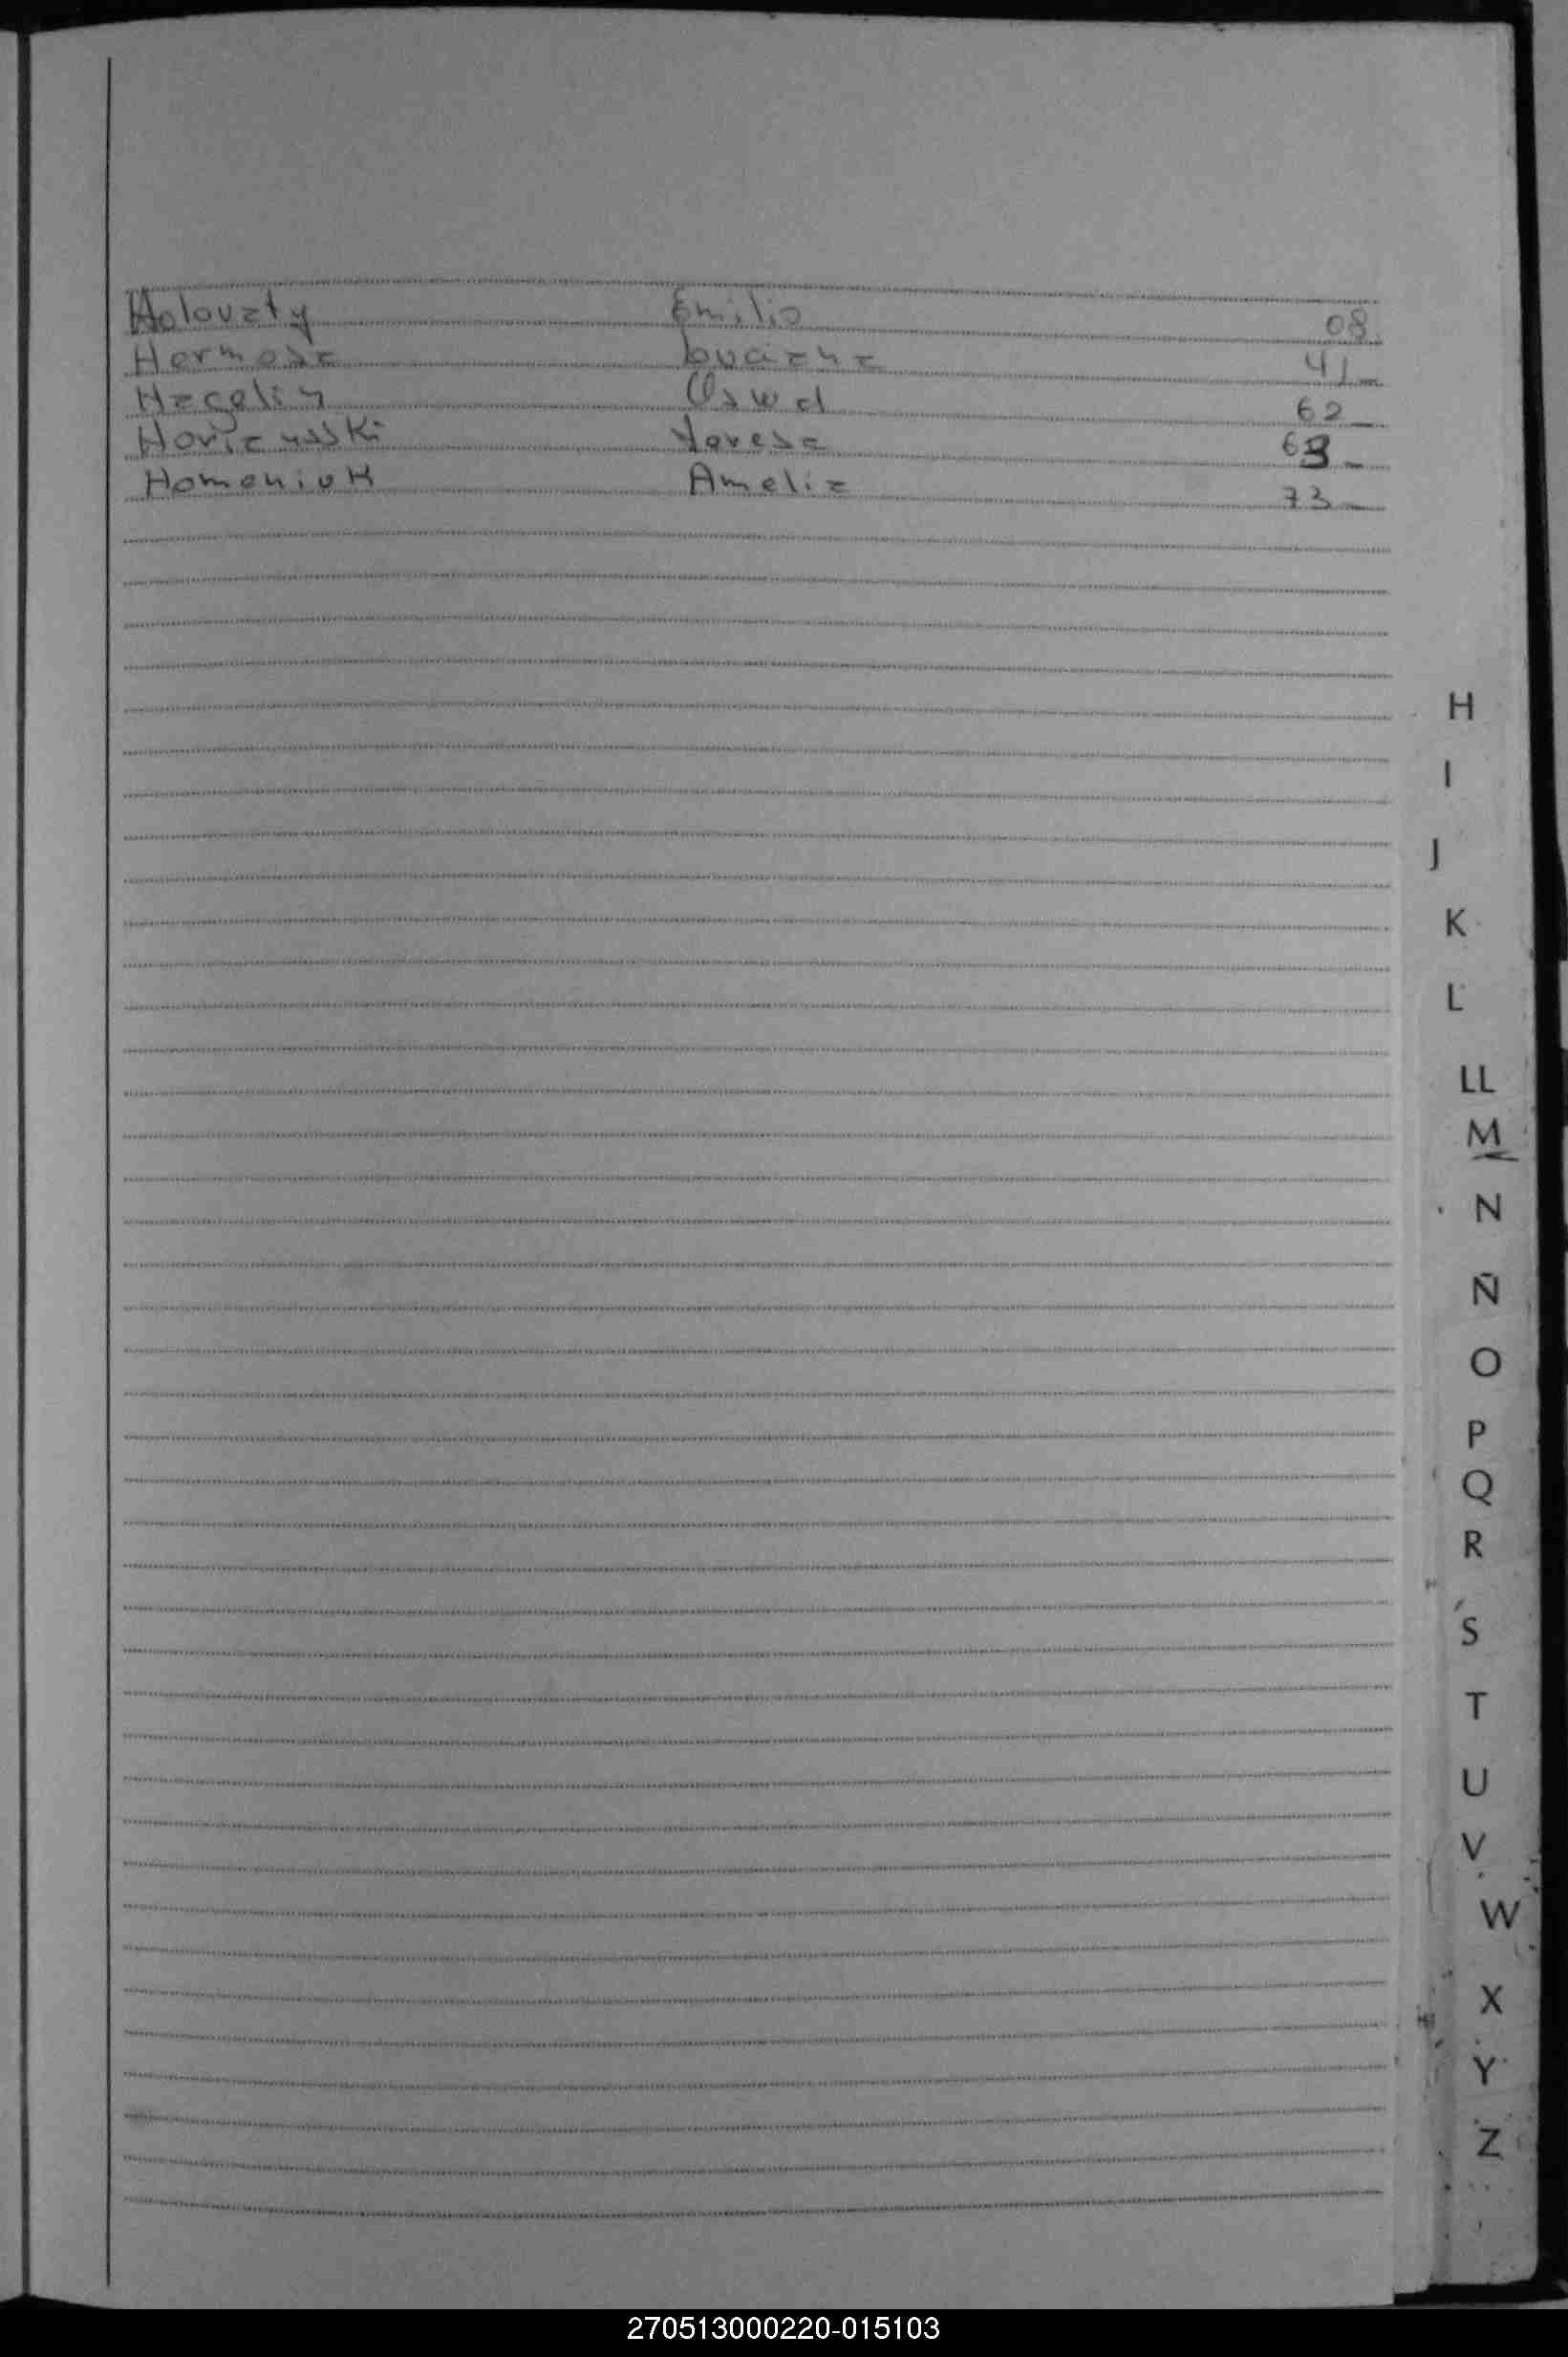 Holovaty Emilio 08
Hermosa Luciana 41
Hegelin Oswd 62
Teresa 63
Homeniuk Amelia 73
H
I
J
K
L
LL
M
N
Ñ
O
P
Q
R
S
T
U
V
W
X
Y
Z
270513000220-015103